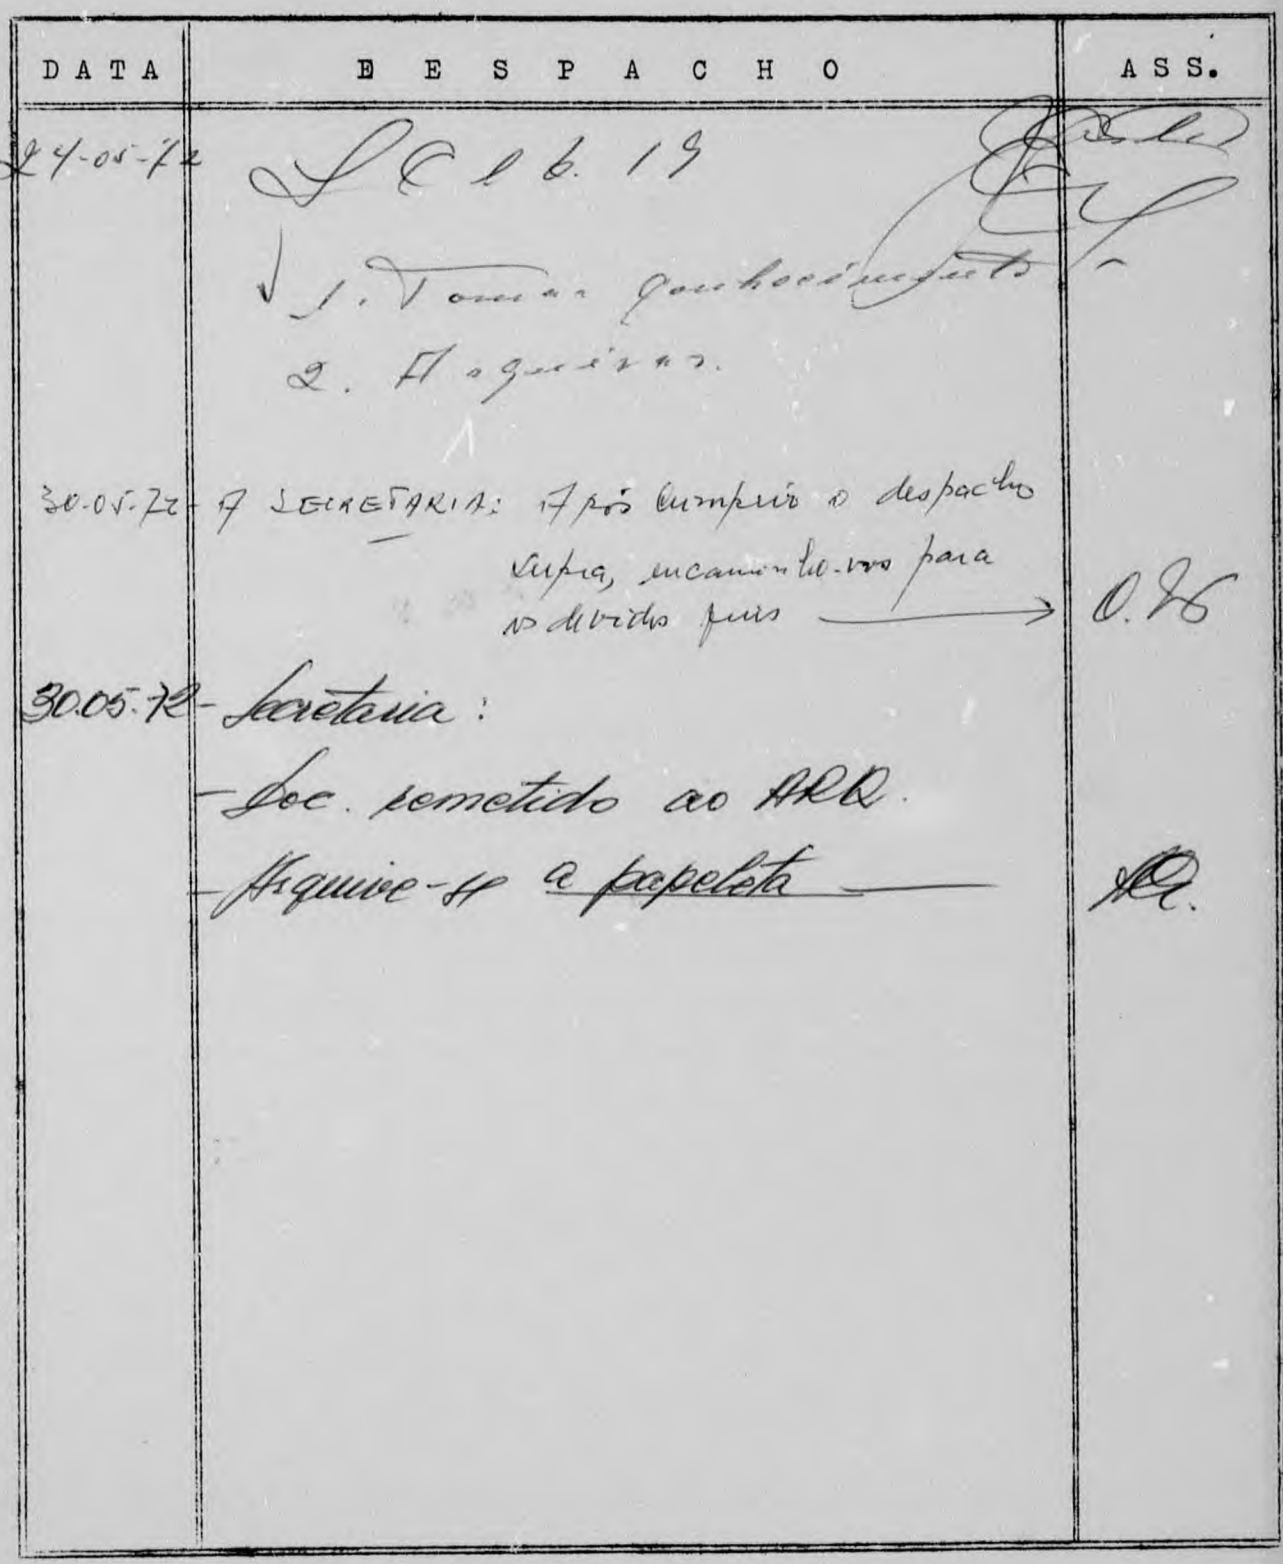 DATA DESPACHO ASS.
24-05-72
1. Tomar conhecimento
2. Arquivar.
30-05-72 - A SECRETARIA: Após cumprir o despacho
supra, encaminho-vos para
os devidos fins
30.05.72 - Secretaria:
- Doc. remetido ao ARQ.
- Arquive-se a papeleta